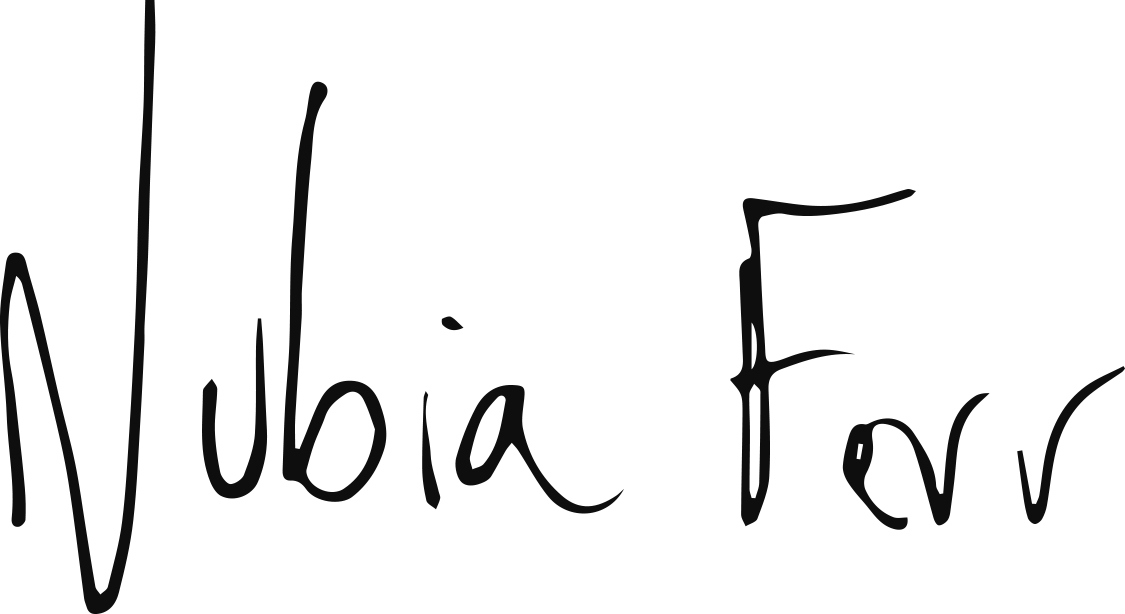 Nubia Ferr